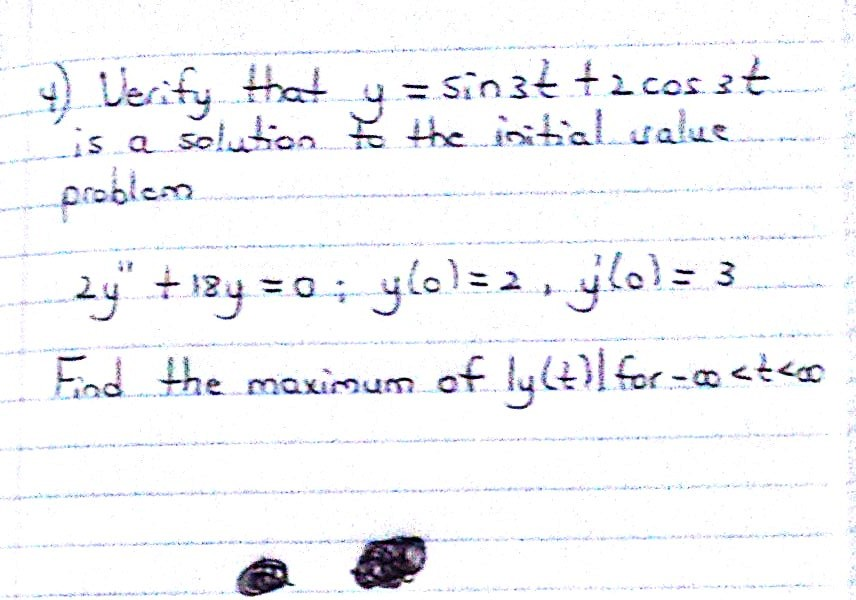 4) Verify that y = sin3t + 2 cos 3t
is a solution to the initial value
problem
2y" + 18y = 0 ; y(0) = 2 , y'(0) = 3
Find the maximum of |y(t)| for -∞ < t < ∞